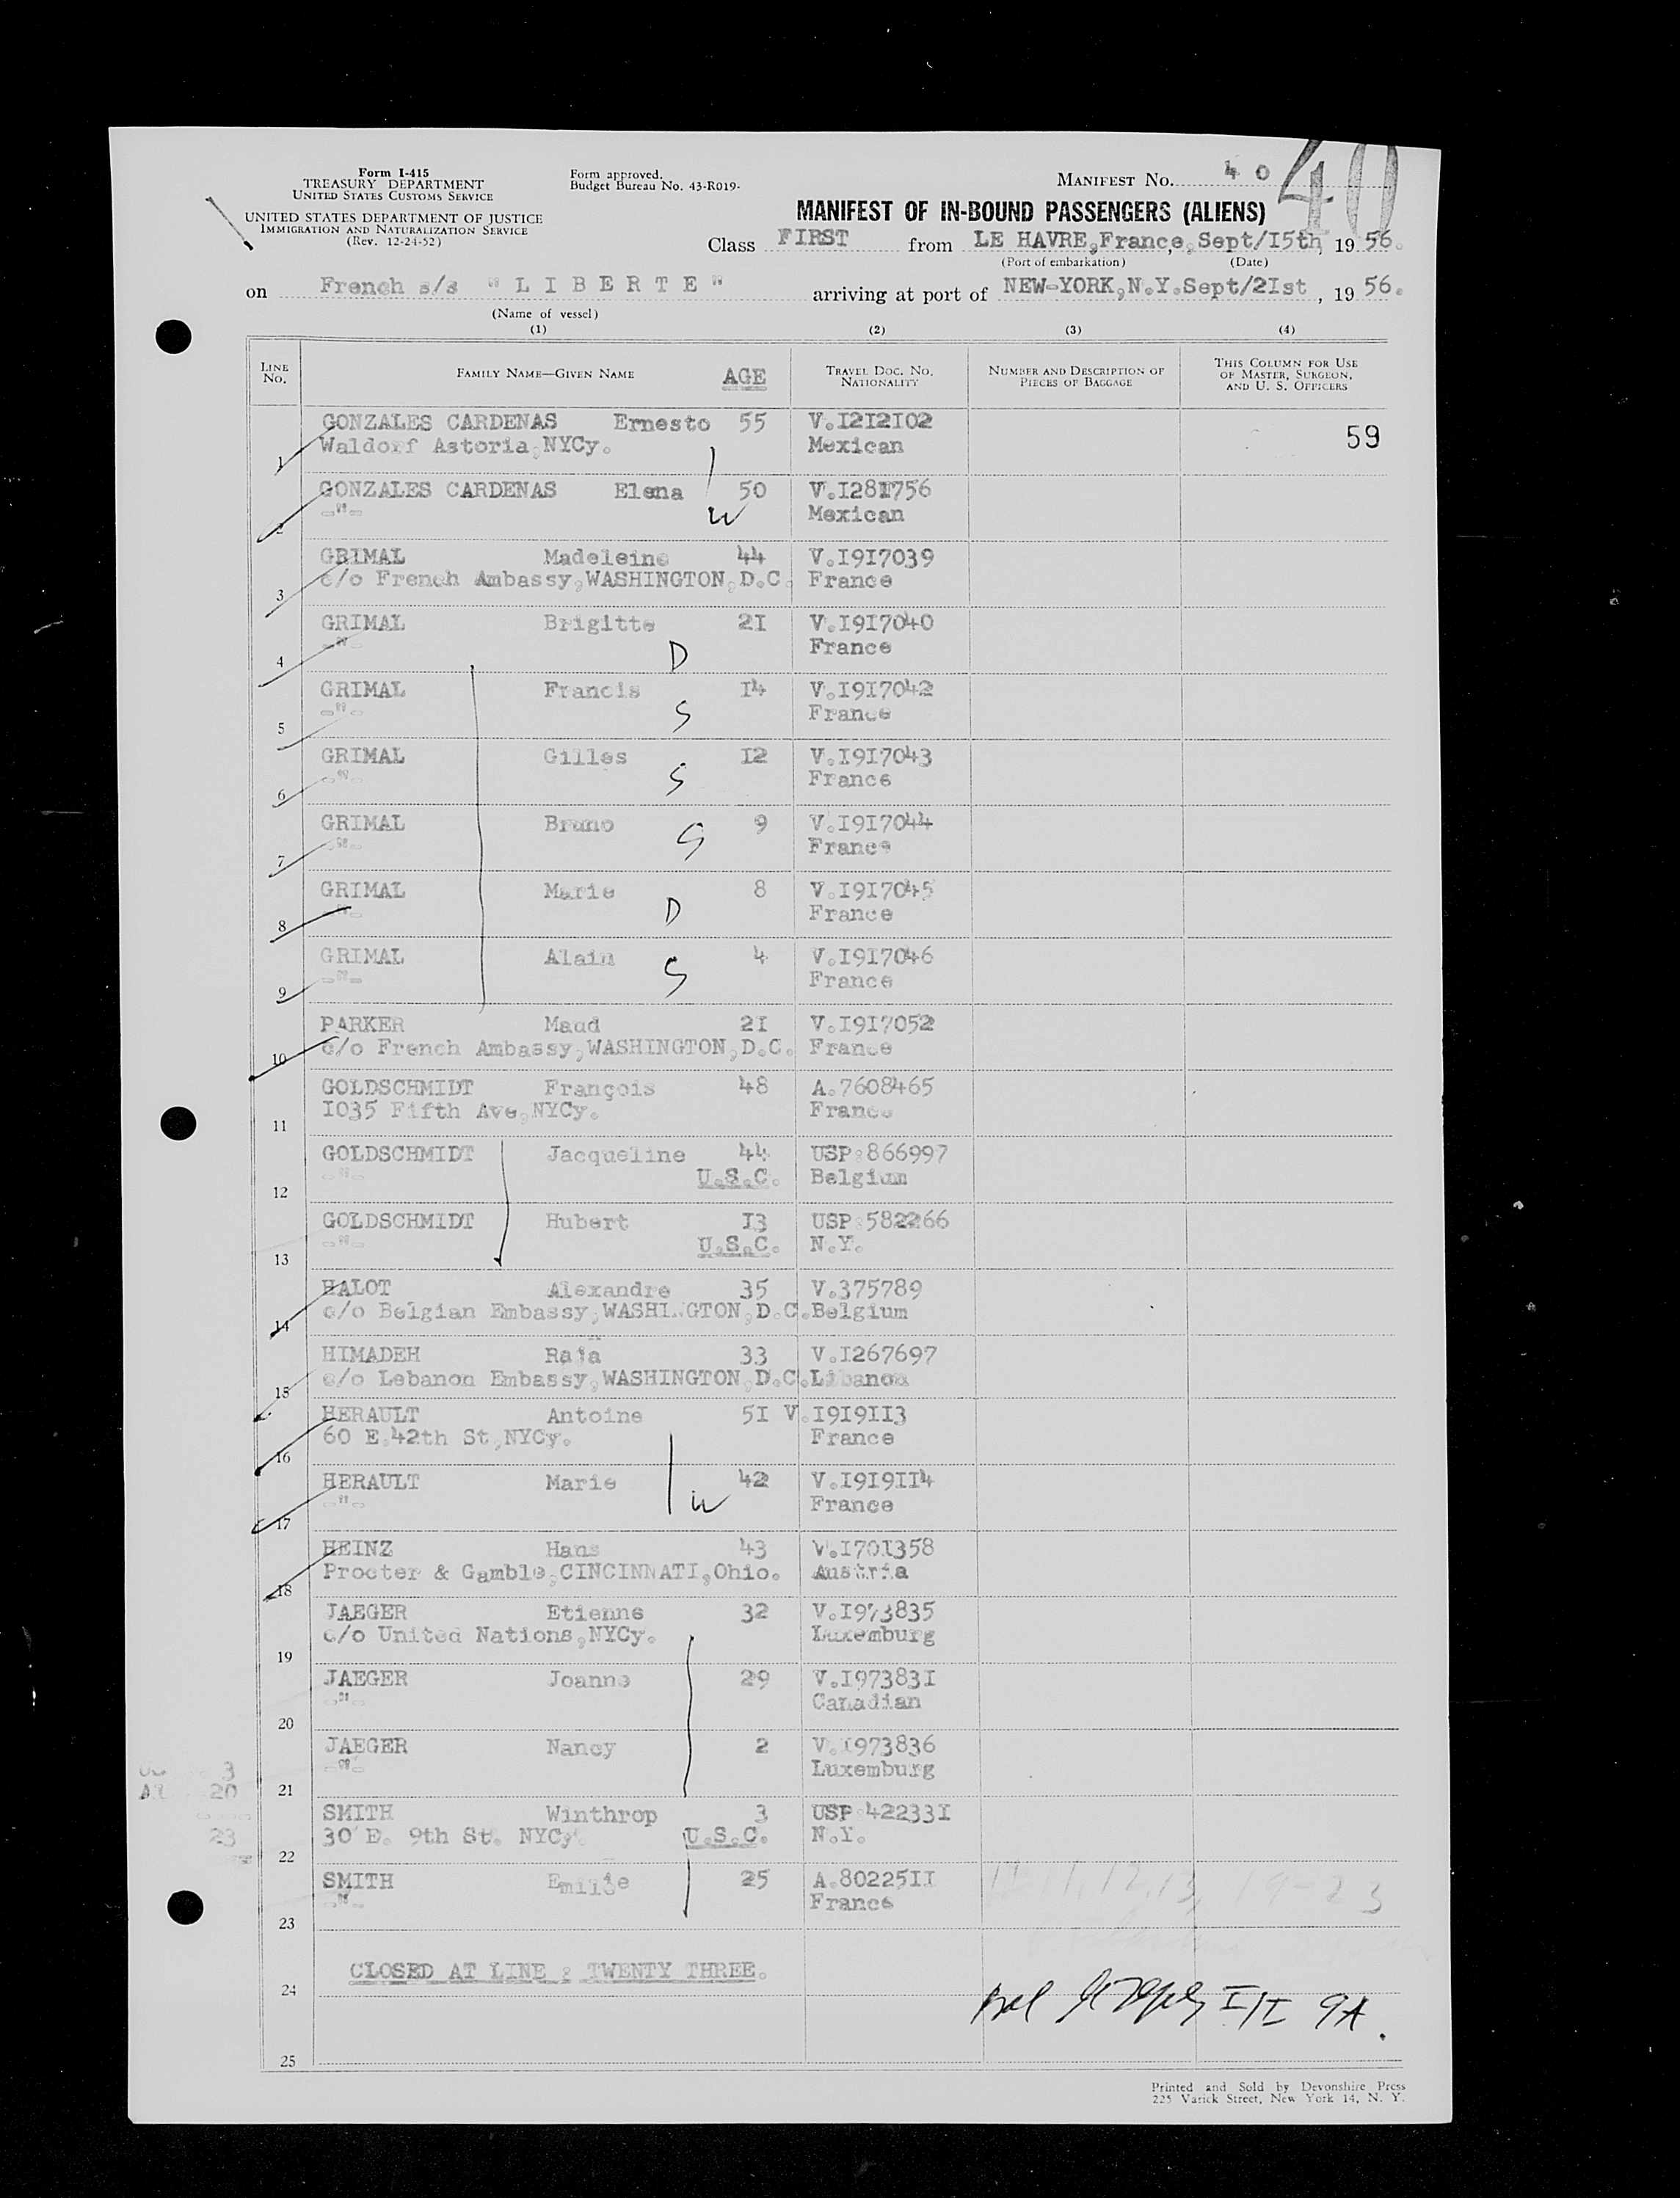 Form I-415
TREASURY DEPARTMENT
UNITED STATES CUSTOMS SERVICE
UNITED STATES DEPARTMENT OF JUSTICE
IMMIGRATION AND NATURALIZATION SERVICE
(Rev. 12-24-52)
Form approved.
Budget Bureau No. 43-R019-
MANIFEST NO. 40
40
MANIFEST OF IN-BOUND PASSENGERS (ALIENS)
Class FIRST from LE HAVRE,France, Sept/I5th, 19 56.
(Port of embarkation) (Date)
on French s/s "LIBERTE" arriving at port of NEW-YORK,N.Y.Sept/2Ist, 19 56.
(Name of vessel)
(1) (2) (3) (4)
LINE NO. FAMILY NAME—GIVEN NAME AGE TRAVEL DOC. NO. NATIONALITY NUMBER AND DESCRIPTION OF PIECES OF BAGGAGE THIS COLUMN FOR USE OF MASTER, SURGEON, AND U. S. OFFICERS
GONZALES CARDENAS Ernesto 55 V.I2I2I02
59
1 Waldorf Astoria,NYCy. Mexican
GONZALES CARDENAS Elena 50 V.I28I756
2 -"- W Mexican
GRIMAL Madeleine 44 V.I9I7039
3 c/o French Ambassy,WASHINGTON,D.C. France
GRIMAL Brigitte 2I V.I9I7040
4 -"- D France
GRIMAL Francis I4 V.I9I7042
5 -"- S France
GRIMAL Gilles I2 V.I9I7043
6 -"- S France
GRIMAL Bruno 9 V.I9I7044
7 -"- S France
GRIMAL Marie 8 V.I9I7045
8 -"- D France
GRIMAL Alain 4 V.I9I7046
9 -"- S France
PARKER Maud 2I V.I9I7052
10 c/o French Ambassy,WASHINGTON,D.C. France
GOLDSCHMIDT François 48 A.7608465
11 I035 Fifth Ave,NYCy. France
GOLDSCHMIDT Jacqueline 44 USP:866997
12 -"- U.S.C. Belgium
GOLDSCHMIDT Hubert I3 USP:582266
13 -"- U.S.C. N.Y.
HALOT Alexandre 35 V.375789
14 c/o Belgian Embassy,WASHINGTON,D.C.Belgium
HIMADEH Raja 33 V.I267697
15 c/o Lebanon Embassy,WASHINGTON,D.C.Libanon
HERAULT Antoine 5I V.I9I9II3
16 60 E.42th St,NYCy. France
HERAULT Marie 42 V.I9I9II4
17 -"- W France
HEINZ Hans 43 V.I70I358
18 Procter & Gamble,CINCINNATI,Ohio. Austria
JAEGER Etienne 32 V.I973835
19 c/o United Nations,NYCy. Luxemburg
JAEGER Joanne 29 V.I97383I
20 -"- Canadian
JAEGER Nancy 2 V.I973836
21 -"- Luxemburg
3
20
23
SMITH Winthrop 3 USP:42233I
22 30 E. 9th St. NYCy. U.S.C. N.Y.
SMITH Emilie 25 A.80225II
23 -"- France
11, 12, 13, 19-23
24 CLOSED AT LINE : TWENTY THREE.
I/I 9A.
25
Printed and Sold by Devonshire Press
225 Varick Street, New York 14, N. Y.